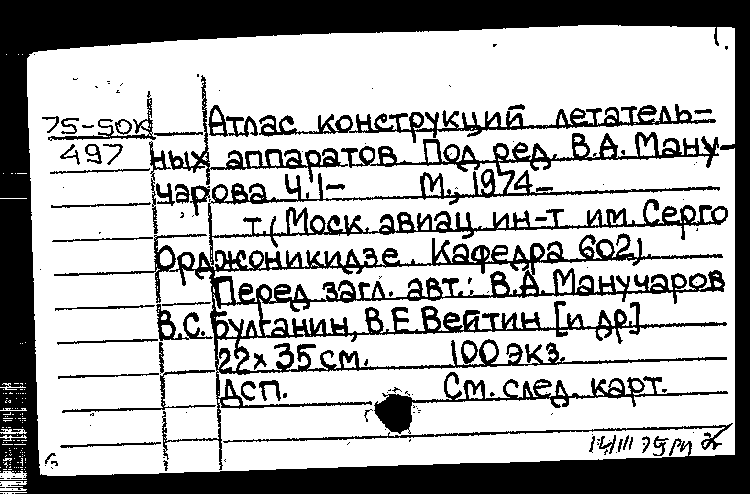 75-50к Атлас конструкций летатель=
497 ных аппаратов. Под ред. В.А. Ману-
чарова. Ч.1- М., 1974-
т. (Моск. авиац. ин-т им. Серго
Орджоникидзе. Кафедра 602).
Перед загл. авт.: В.А. Манучаров
В.С. Булганин, В.Е. Вейтин [и др.]
22х35 см. 100 экз.
ДСП. См. след. карт.